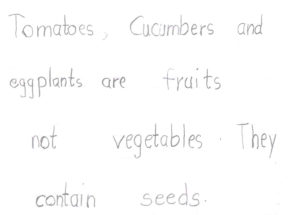 Tomatoes, Cucumbers and
eggplants are fruits
not vegetables. They
contain seeds.